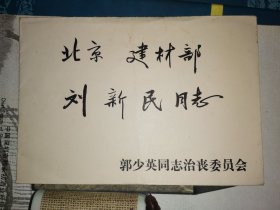 北京 建材部
刘新民同志
郭少英同志治丧委员会